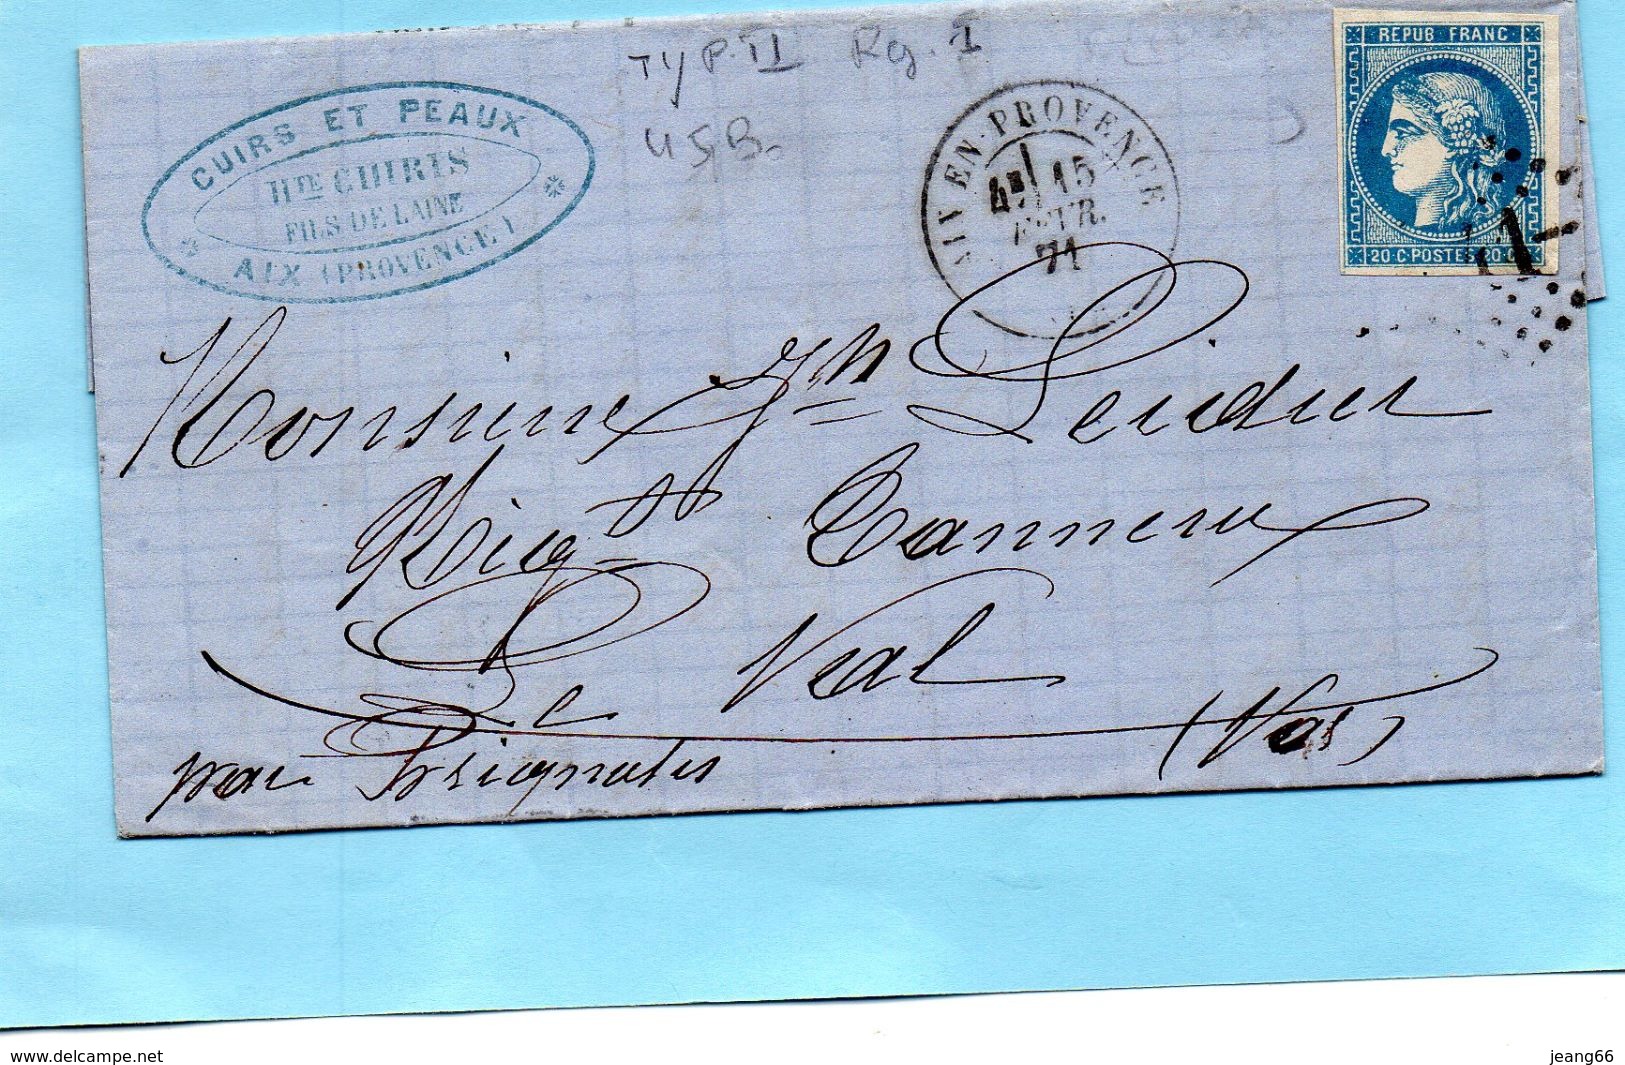 TYP. II Rg. I
45B.
CUIRS ET PEAUX
Hte CHIRIS
FILS DE LAINE
AIX (PROVENCE)
AIX-EN-PROVENCE
4E 15
FEVR.
71
REPUB FRANC
20 C POSTES 20 C
Monsieur Jh Leidier
Négt Tanneur
Le Val
(Var)
par Brignoles
www.delcampe.net
jeang66